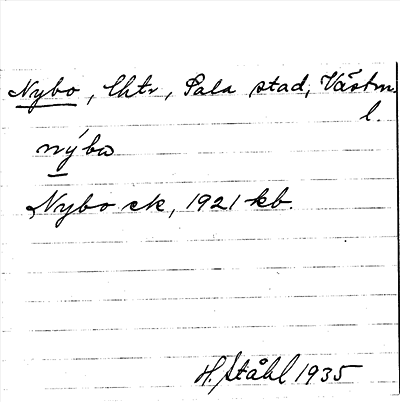 Nybo, lhtr, Sala stad, Västm.
l.
nýbo
Nybo ek, 1921 kb.
H. Ståhl 1935